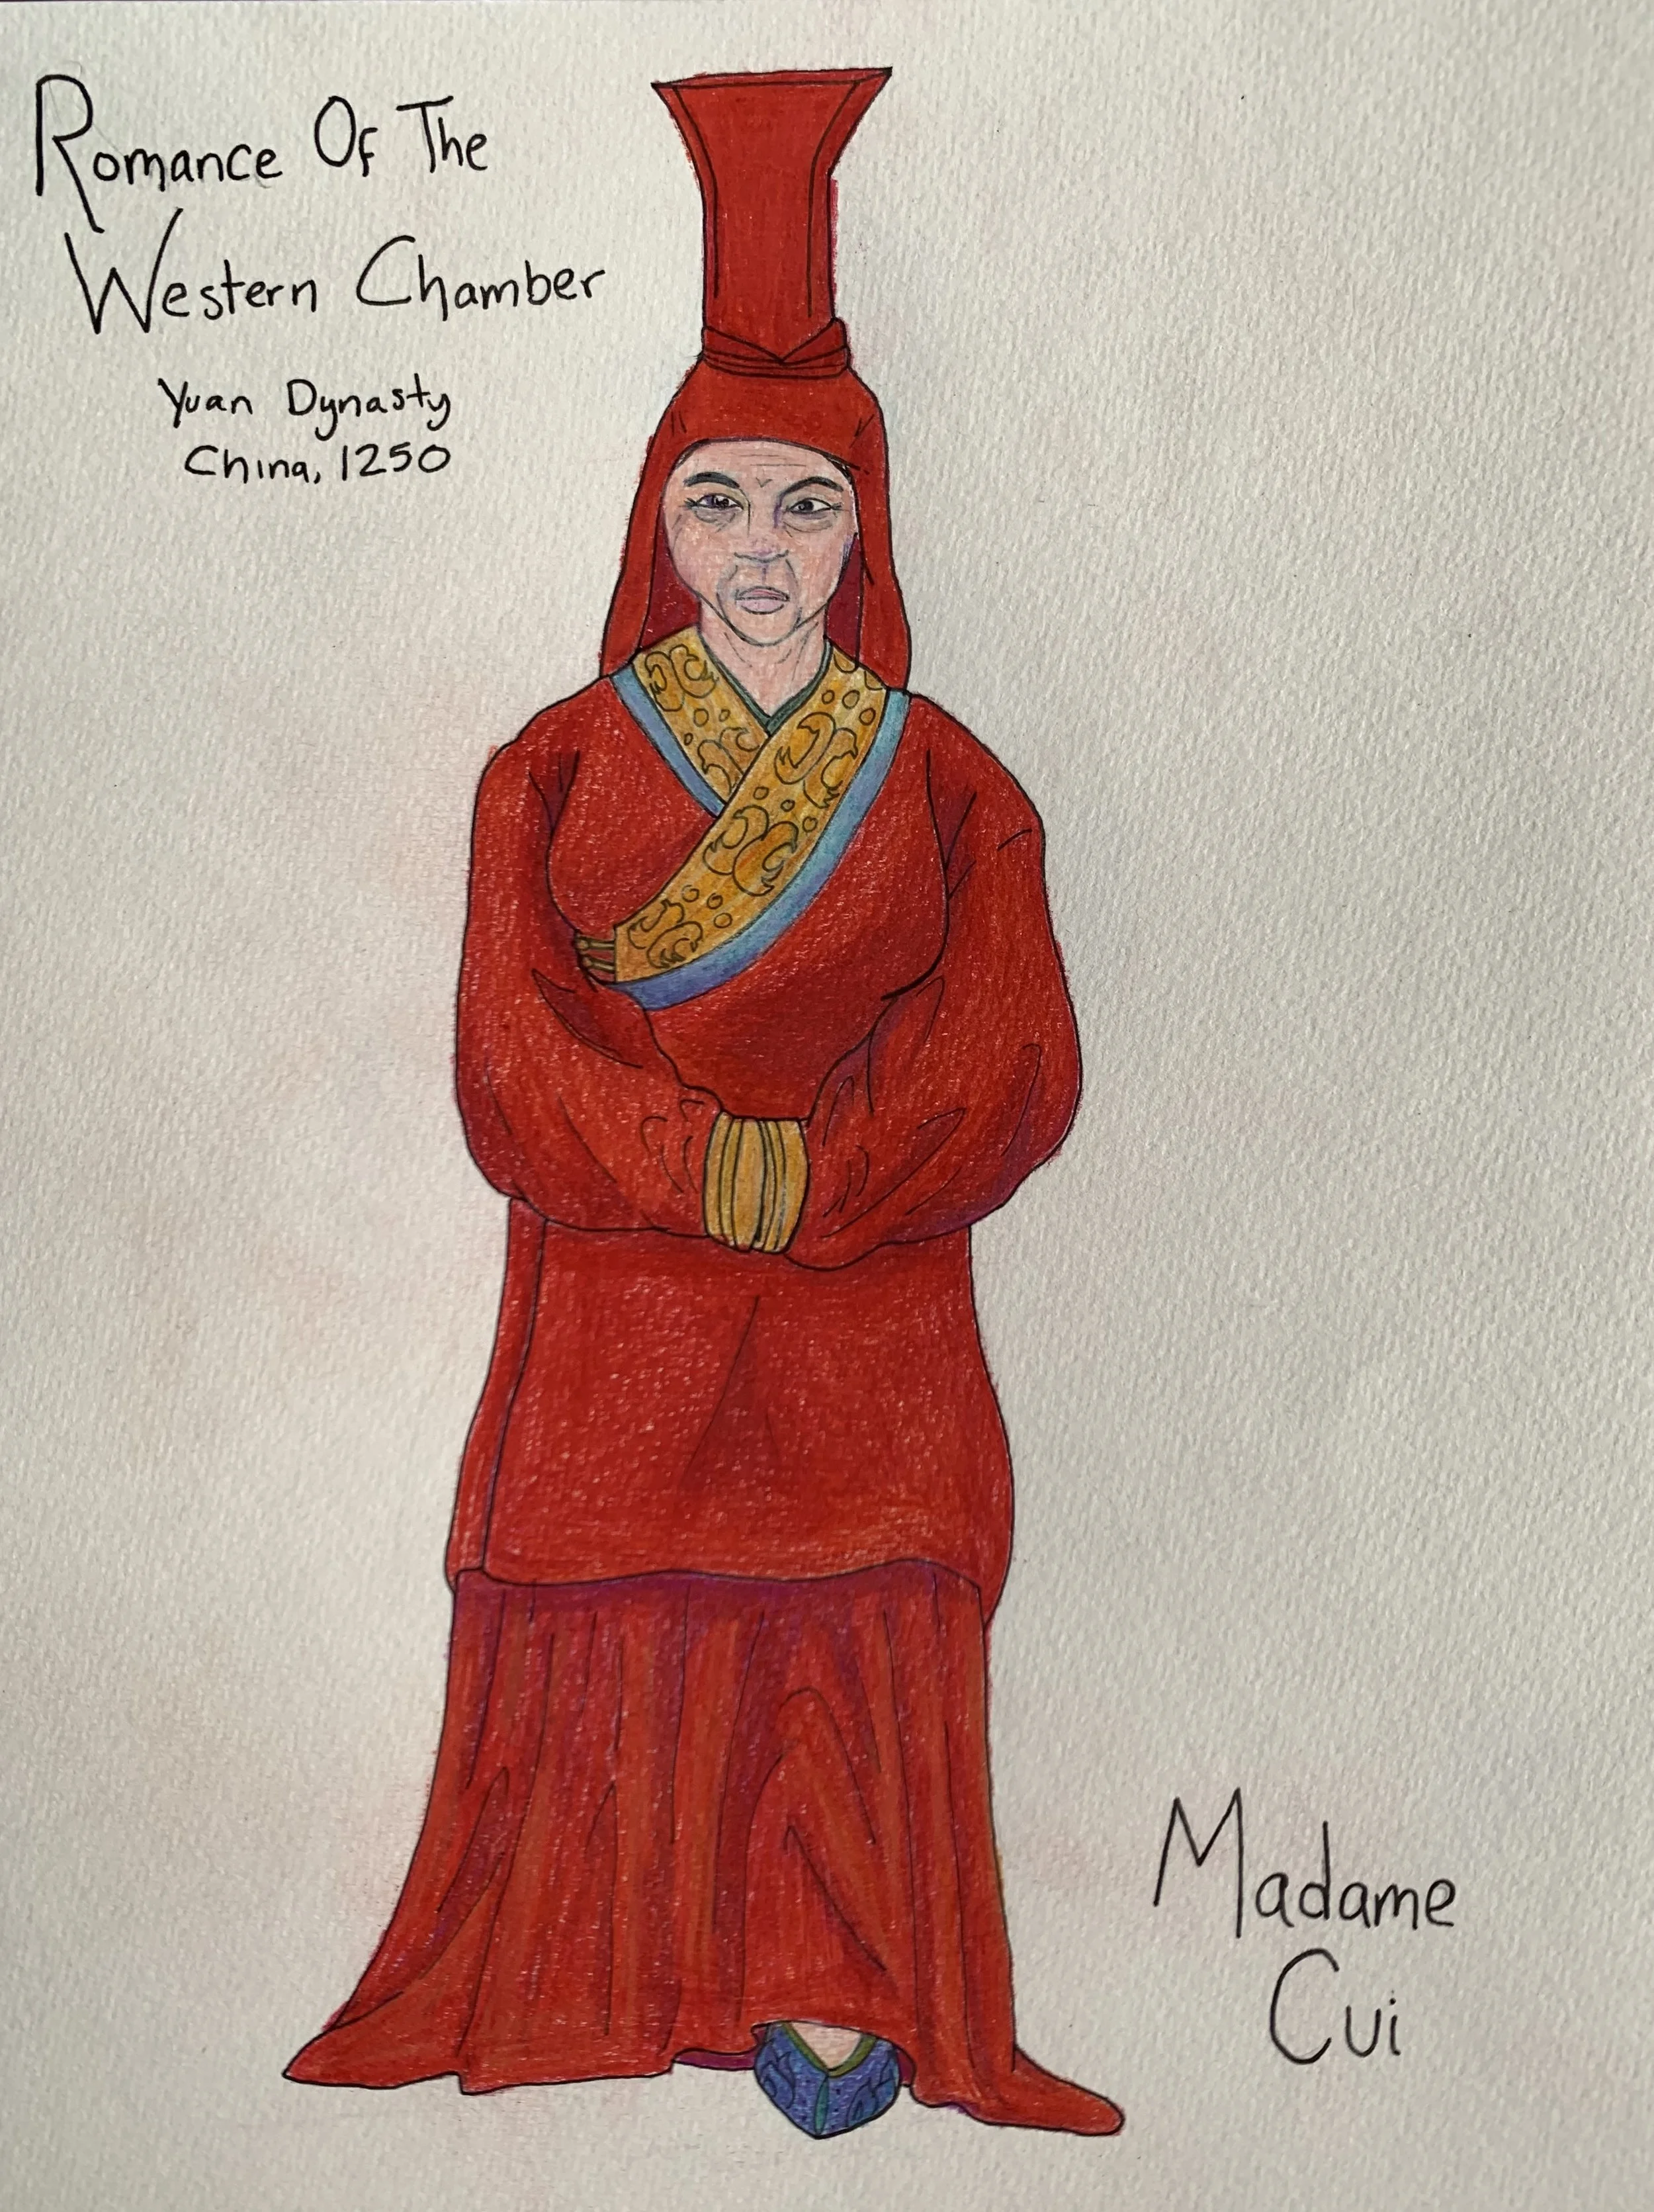 Romance Of The
Western Chamber
Yuan Dynasty
China, 1250
Madame
Cui